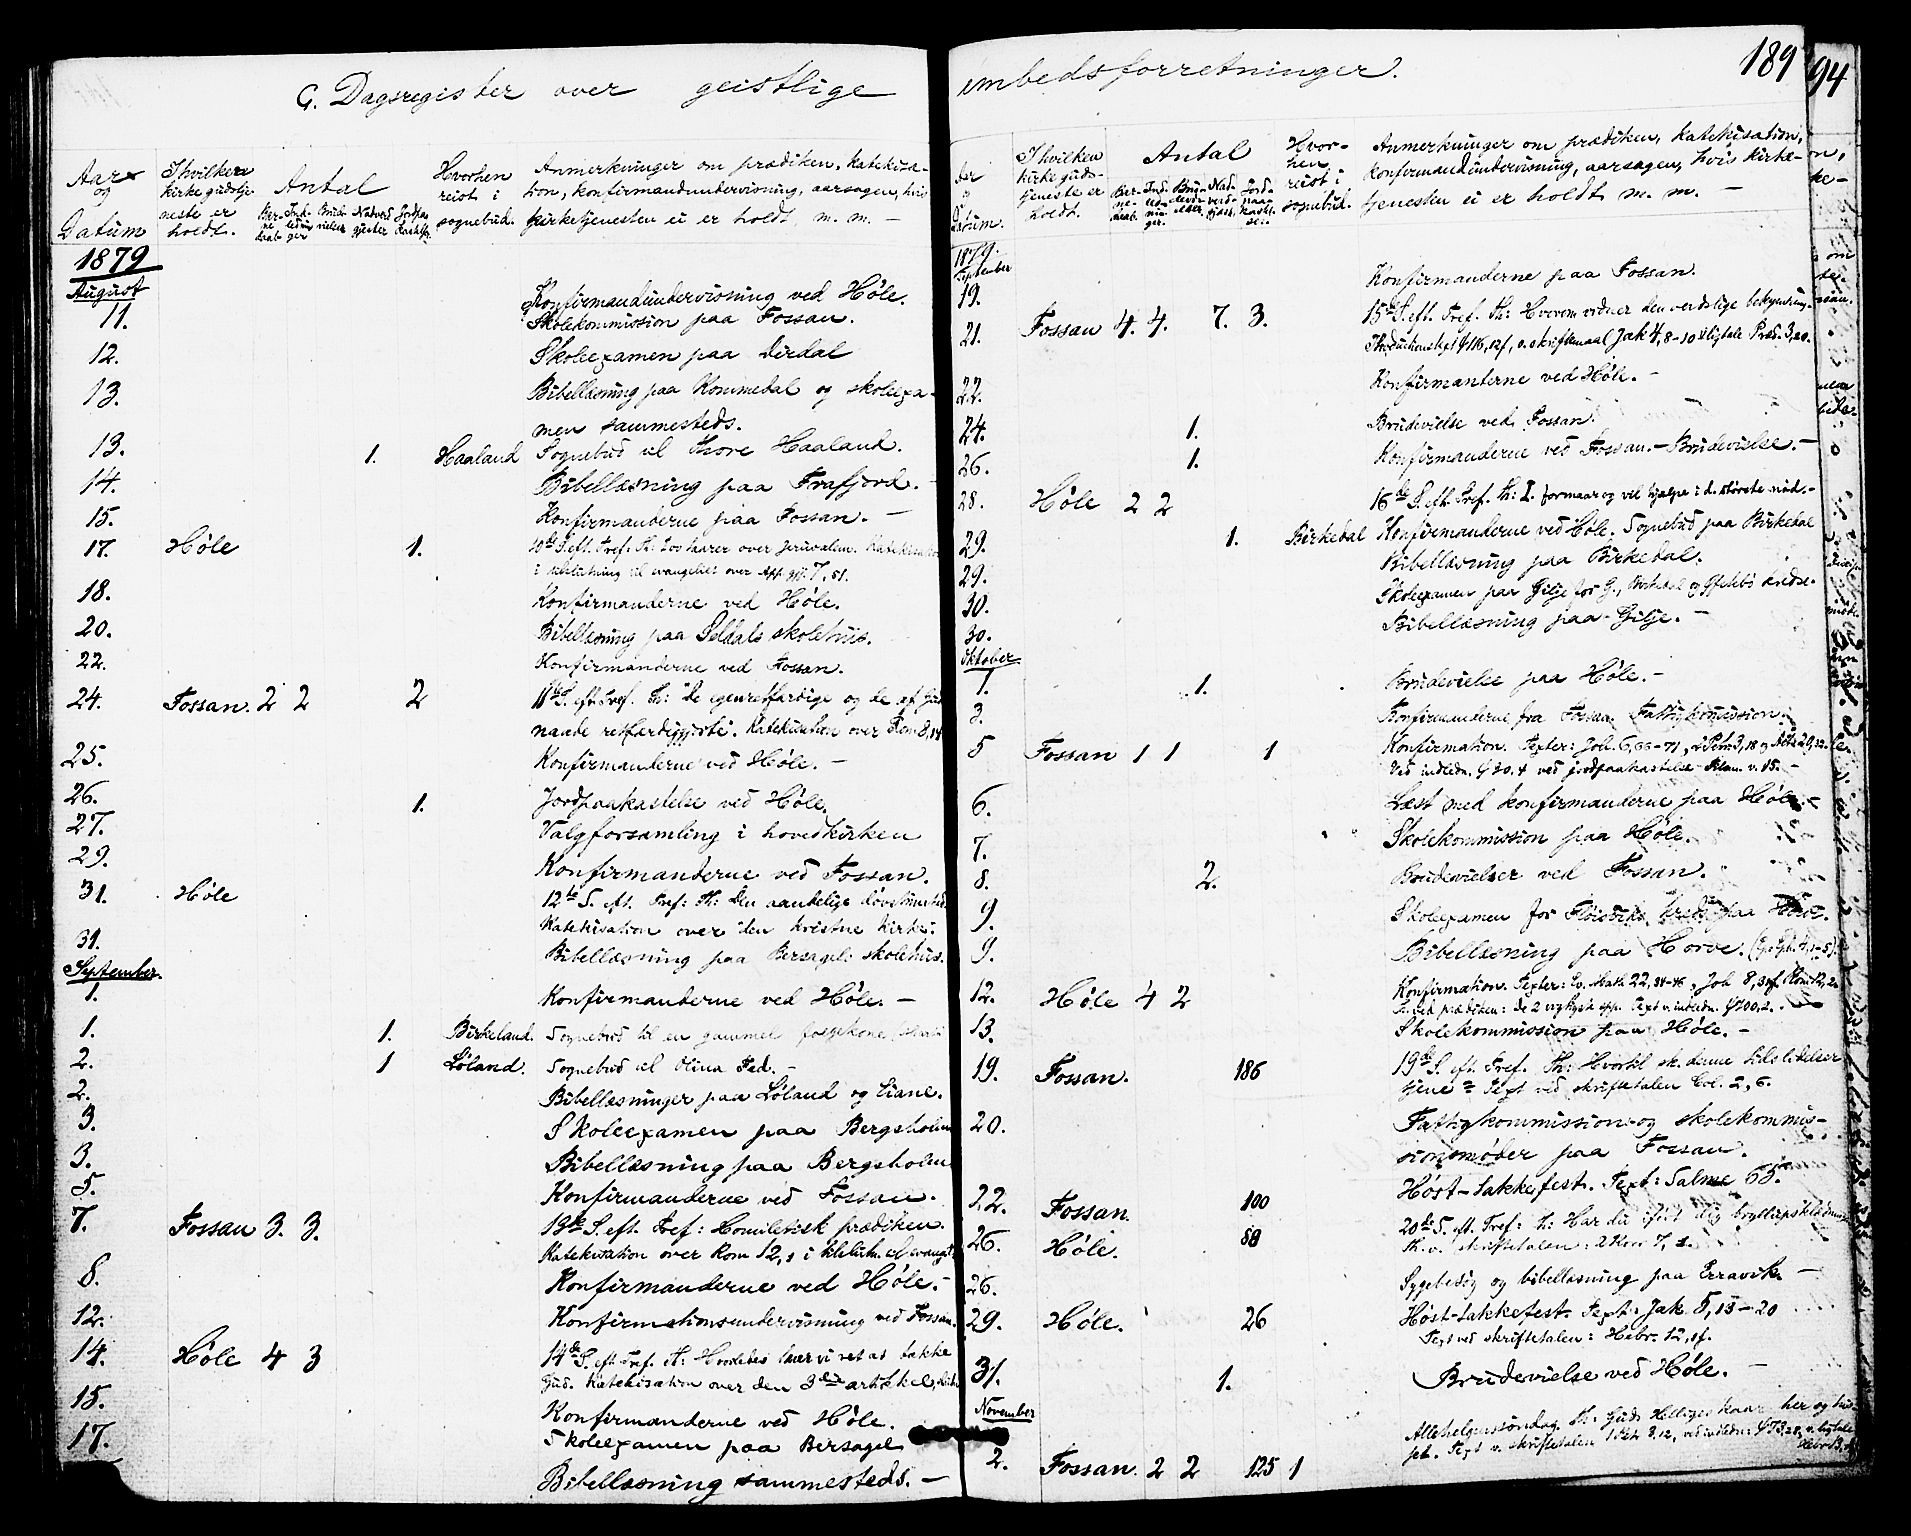 G. Dagsregister over geistlige
Aar og Datum
I hvilken kirke gudstjeneste er holdt.
Antal
Hvorhen reist i sognebud.
Anmerkninger om prædiken, katekisation, konfirmandundervisning, aarsagen, hvis kirketjenesten ei er holdt m. m. —
1879
August
11. Konfirmandundervisning ved Høle.
Skolekommission paa Fossan.
12. Skoleexamen paa Dirdal
13. Bibellæsning paa Kommedal og skoleexa-
men sammesteds.
13. 1. Haaland Sognebud til Thore Haaland.
14. Bibellæsning paa Frafjord. -
15. Konfirmanderne paa Fossan. —
17. Høle 1. 10de S. eft. Tref. Th: over Jerusalem. Katekisation
i til evangeliet over Ap. gj. 7, 51.
18. Konfirmanderne ved Høle.
20. Bibellæsning paa Seldals skolehus.
22. Konfirmanderne ved Fossan.
24. Fossan. 2 2 2 11te S. eft. Tref. Th: De egenretfærdige og de af Guds
naade retfærdiggjorte. Katekisation over Rom 8, 14
25. Konfirmanderne ved Høle. -
26. 1. Jordpaakastelse ved Høle.
27. Valgforsamling i hovedkirken
29. Konfirmanderne ved Fossan.
31. Høle 12te S. eft. Tref: Th: Den aandelige døvstumhed.
Katekisation over den kristne kirke.
31. Bibellæsning paa Bersagel skolehus.
September.
1. Konfirmanderne ved Høle. —
1. 1. Birkeland. Sognebud til en gammel
2. 1 Løland. Sognebud til Olina Ped. -
2. Bibellæsninger paa Løland og Eiane.
3. Skoleexamen paa Bergsholm
3. Bibellæsning paa Bergsholm
5. Konfirmanderne ved Fossan.
7. Fossan 3. 3. 13de S. eft. Tref: Homiletisk prædiken.
Katekisation over Rom 12, 1 i til evang.
8. Konfirmanderne ved Høle. -
12. Konfirmationsundervisning ved Fossan.
14. Høle 4 3 14de S. eft. Tref. Th: Hvorledes lærer vi ret at takke
Gud. Katekisation over den 3die artikkel,
15. Konfirmanderne ved Høle.
17. Skoleexamen paa Bersagel
Bibellæsning sammesteds. —
embedsforretninger.
189
94
Aar og Datum.
I hvilken kirke gudstjeneste er holdt.
Antal
Hvorhen reist i sognebud.
Anmerkninger om prædiken, katekisation,
konfirmandundervisning, aarsagen, hvis kirke-
tjenesten ei er holdt m. m. —
1879.
September
19. Konfirmanderne paa Fossan.
21. Fossan 4. 4. 7. 3. 15de S. eft. Tref. Th: Hvorom vidner den verdslige bekymring.
116, 12f, v. skriftemaal Jak 4, 8-10 ligtale Præd. 3, 20.
22. Konfirmanterne ved Høle. -
24. 1. Brudevielse ved Fossan.
26. 1. Konfirmanderne ved Fossan. — Brudevielse. —
28. Høle 2 2 16de S. eft. Tref. Th: J. formaar og vil hjælpe i d. største nød. -
29. 1. Birkedal Konfirmanderne ved Høle. Sognebud paa Birkedal
29. Bibellæsning paa Birkedal.
30. Skoleexamen paa Gilje for G., Birkedal og kredse.
30. Bibellæsning paa Gilje. —
Oktober
1. 1. Brudevielse paa Høle. -
3. Konfirmanderne fra Fossan. Fattigkomission.
5 Fossan 1 1 1 Konfirmation. Texter: Joh. 6, 66-71, 2 Petr. 3, 18
Ved indledn. ved jordpaakastelse v. 15. -
6. Læst med konfirmanderne paa Høle. -
7. Skolekommission paa Høle.
8. 2. Brudevielser ved Fossan.
9. Skoleexamen for kreds paa
9. Bibellæsning paa Horve.
12. Høle 4 2 Konfirmation. Texter: Ev. Math 22, 34-46, Joh 8,
13. Skolekommission paa Høle. -
19. Fossan. 186 19de S. eft. Tref. Th: Hvortil sk. denne tids lidelser
tjene = Text ved skriftetalen Col. 2, 6.
20. Fattigkommission- og skolekommis-
sionsmøder paa Fossan.
22. Fossan. 100 Høst-takkefest. Text: Salme 65.
26. Høle. 88 20de S. eft. Tref: Th: Har du iført dig bryllupsklædningen
Th. v. skriftetalen: 2 Kor 7, 1.
26. Sygebesøg og bibellæsning paa Erravik. —
29. Høle. 26 Høst-takkefest. Text: Jak 5, 13-20
Text ved skriftetalen: Hebr. 12, 1f.
31. 1. Brudevielse ved Høle. —
November
2. Fossan. 2 2 125 1 Allehelgenssøndag. Th: Guds Helliges kaar her og hisset.
Text v. skriftetalen 1 Petr 3, 12, ved indledn: